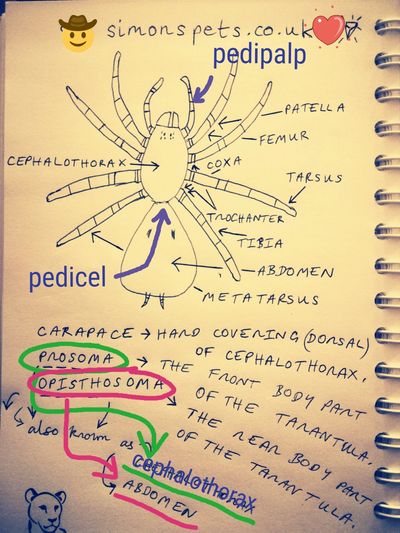 simonspets.co.uk
pedipalp
PATELLA
FEMUR
CEPHALOTHORAX
COXA
TARSUS
TROCHANTER
TIBIA
pedicel
ABDOMEN
METATARSUS
CARAPACE → HARD COVERING (DORSAL)
OF CEPHALOTHORAX.
PROSOMA → THE FRONT BODY PART
OF THE TARANTULA.
OPISTHOSOMA → THE REAR BODY PART
OF THE TARANTULA.
also known as
cephalothorax
ABDOMEN